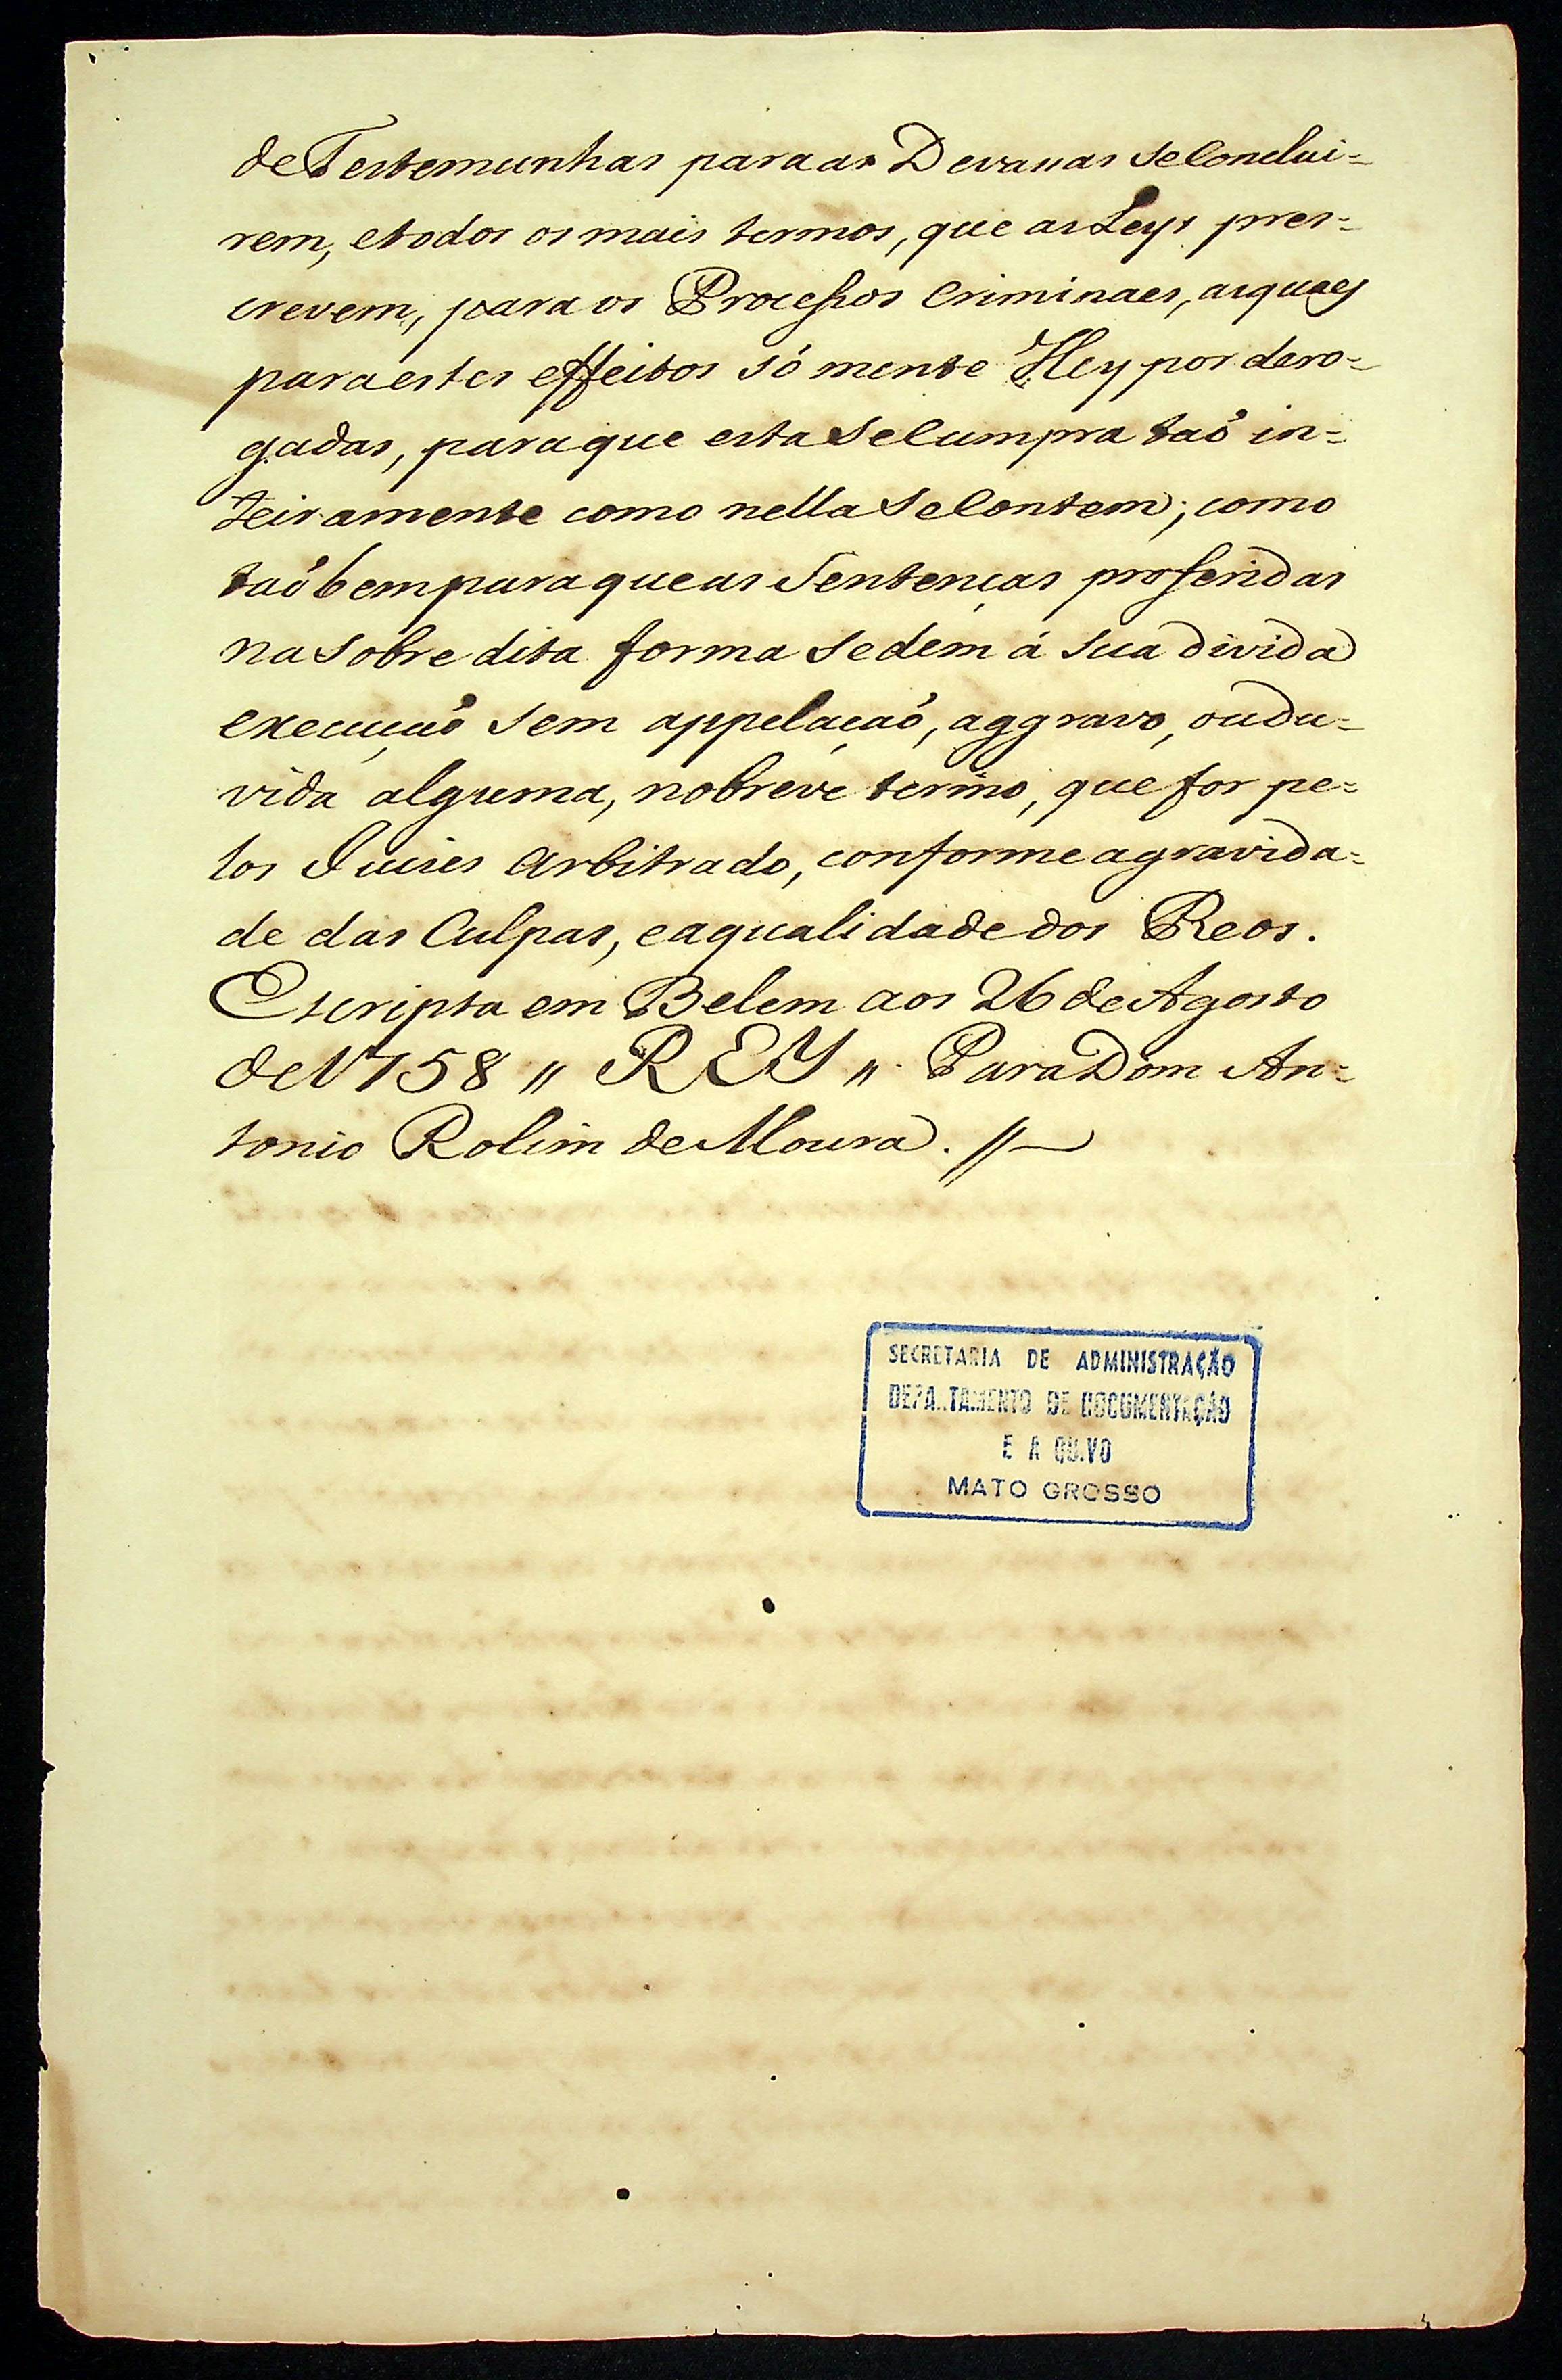 de Testemunhas para as Devaças se conclui=
rem, e todos os mais termos, que as Leys pres=
crevem, para os Processos Criminaes, as quaes
para estes effeitos só mente Hey por dero=
gadas, para que esta se cumpra taõ in=
teiramente como nella se contem; como
taõ bem para que as Sentenças proferidas
na sobre dita forma se dem á sua divida
execuçaõ sem appelaçaõ, aggravo, ou du=
vida alguma, no breve termo, que for pe=
los Juises arbitrado, conforme a gravida=
de das Culpas, e a qualidade dos Reos.
Escripta em Belem aos 26 de Agosto
de 1758 〃 REY 〃 Para Dom An=
tonio Rolim de Moura. //—
SECRETARIA DE ADMINISTRAÇÃO
DEPARTAMENTO DE DOCUMENTAÇÃO
E ARQUIVO
MATO GROSSO